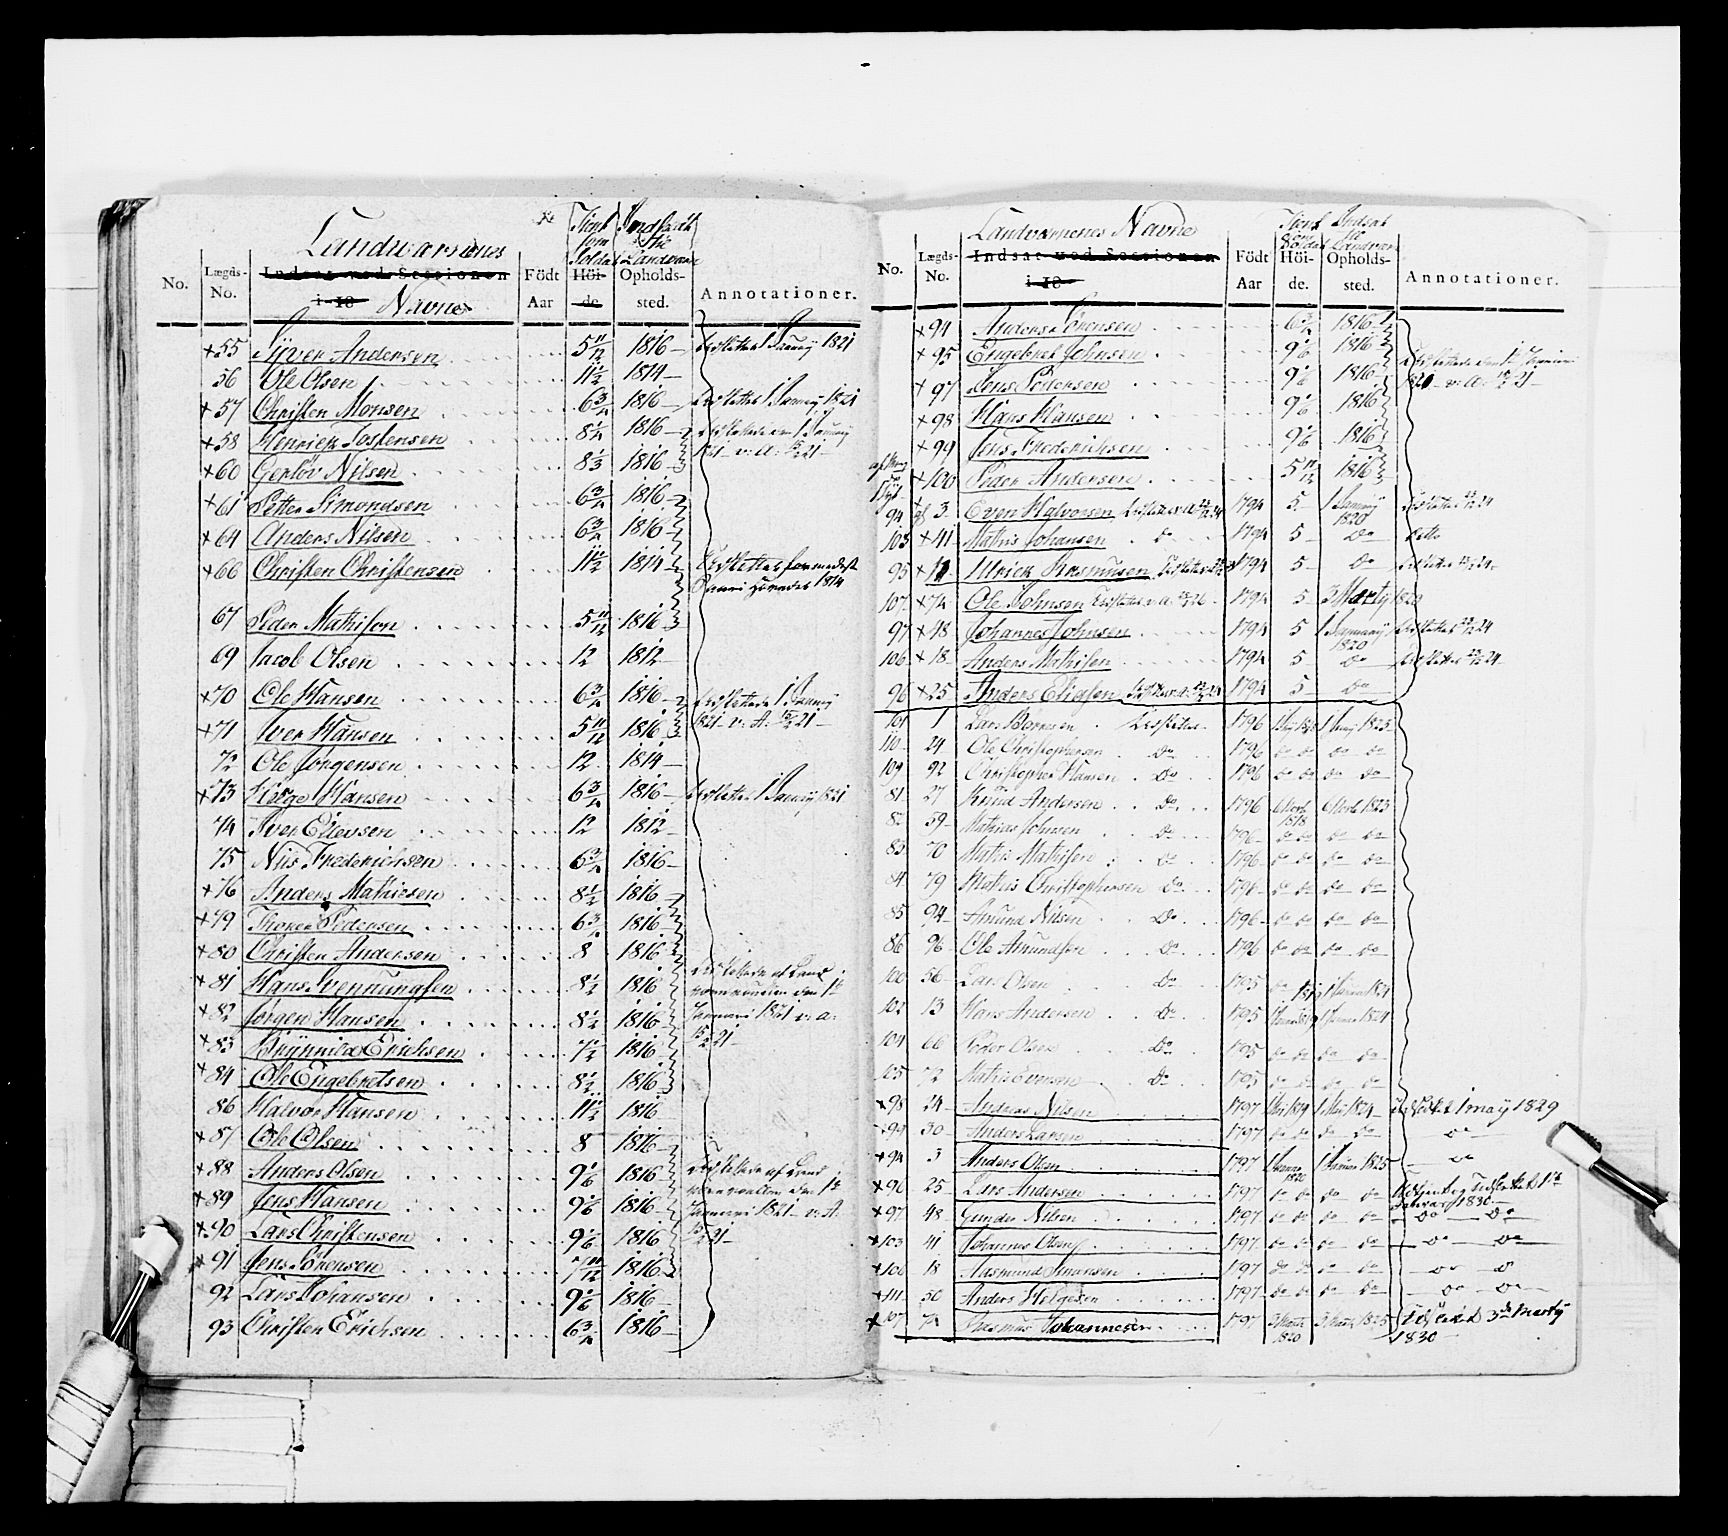 Landværnenes
Tient som Soldat
Indsadt til Landværn
No.
Lægds-No.
Indsat ved Sessionen i 18
Navne
Födt Aar
Höide.
Opholdssted.
Annotationer.
×55 Syver Andersen 5 11/12 1816 Udslettet 1 Januarij 1821
56 Ole Olsen 11 1/2 1814
×57 Christen Monsen 6 3/4 1816 Udslettet 1 Januarij 1821
×58 Henrich Tostensen 8 1/2 1816 Udslettede den 1 Januarij
×60 Gerlöv Nilsen 8 1/3 1816 1821 v: A: 15/2 21
×61 Petter Simondsen 6 3/4 1816
×64 Anders Nilsen 6 3/4 1816
×66 Christen Christensen 11 1/2 1814 Udslettet formedelst
1814
67 Peder Mathison 5 11/12 1816
69 Jacob Olsen 12 1812
×70 Ole Hansen 6 3/4 1816 Udslettede 1 Januarij
×71 Iver Hansen 5 11/12 1816 1821 v: A: 15/2 21
72 Ole Jörgensen 12 1814
×73 Helge Hansen 6 3/4 1816 Udslettet 1 Januarij 1821
74 Iver Elievsen 12 1812
75 Nils Frederichsen 6 3/4 1816
×76 Anders Mathiesen 8 1/2 1816
×79 Pedersen 6 3/4 1816
×80 Christen Andersen 8 1816
×81 Hans Svennungsen 8 1/2 1816 Udslettede af Land
×82 Jörgen Hansen 8 1/2 1816 værnrullen den 1ste
×83 Brynnild Erichsen 7 1/2 1816 Januari 1821 v: A:
×84 Ole Engebretsen 8 1/2 1816 15/2 21
86 Halvor Hansen 11 1/2 1816
×87 Ole Olsen 8 1816
×88 Anders Olsen 9 1/6 1816 Udslettede af Land
×89 Jens Hansen 9 1/6 1816 værnrullen den 1ste
×90 Lars Christensen 9 1/6 1816 Januari 1821 v: A:
×91 Jens Sörensen 7 11/12 1816 15/2 21
92 Lars Johansen 9 1/6 1816
93 Christen Erichsen 6 3/4 1816
Landværnenes Navne
Tient som Soldat
Indsat til Landværn
No.
Lægds-No.
Indsat ved Sessionen i 18
Födt Aar
Höide.
Opholdssted.
Annotationer.
×94 Anders Sörensen 6 3/4 1816
×95 Engebret Johnsen 9 1/6 1816 Udslettede den 1ste Januari
×97 Jens Pedersen 9 1/6 1816 1821 v: A: 15/2 21
×98 Hans Hansen 9 1/6 1816
×99 Jens Frederichsen 9 1/6 1816
×100 Peder Andersen 5 11/12 1816
94 3 Even Halvorsen 1794 5 1 Januarij 1820 Udslettet 24
103 ×41 Mathis Johansen do 1794 5 Do
95 × Ulrich Rasmusen 1794 5 Do Udslettet 24
107 ×74 Ole Johnsen Udslettet v: A: 26 1794 5 3 Martÿ 1820
97 ×48 Johannes Johnsen 1794 5 1 Januarij 1820 Udslettet 24
106 ×18 Anders Mathisen 1794 5 Do Udslettet 24
96 ×25 Anders Eliasen 1794 5 Do
101 1 Lars Udslettet 1796 1 1 1825
110 24 Ole Christophersen Do 1796 do do do do
109 92 Christopher Hansen Do 1796 do do do do
81 27 Knud Andersen Do 1796 1818 1823
82 59 Mathias Johnsen Do 1796 do do do do
83 70 Mathis Mathisen Do 1796 do do do do
84 79 Mathis Christophersen Do 1796 do do do do
85 94 Amund Nilsen Do 1796 do do do do
86 96 Ole Amundsen Do 1796 do do do do
100 56 Lars Olsen Do 1795 1 Januar
102 13 Hans Andersen Do 1795 1 Januar 1819 1 Januar 1824
104 66 Peder Olsen Do 1795 do do do do
105 72 Mathis Evensen Do 1795 do do do do
×98 24 Anders Nilsen 1797 1 Mai 1819 1 Mai 1824 Udslettet 1 may 1829
×99 30 Anders Larsen 1797 do do do do do
×94 3 Anders Olsen 1797 1 Januar 1820 1 Januar 1825 do
×96 25 Lars Andersen 1797 do do do do Udtjent og Udslettet 1ste
Januar 1830
×97 48 Gunder Nilsen 1797 do do do do do do
×103 41 Johannes Olsen 1797 do do do do do do
×106 18 Aasmund 1797 do do do do do do
×111 50 Anders Helgesen 1797 do do do do do do
×107 74 Rasmus Johannesen 1797 3 Marti 1820 3 Marti 1825 Udslettet 3de Martÿ
1830